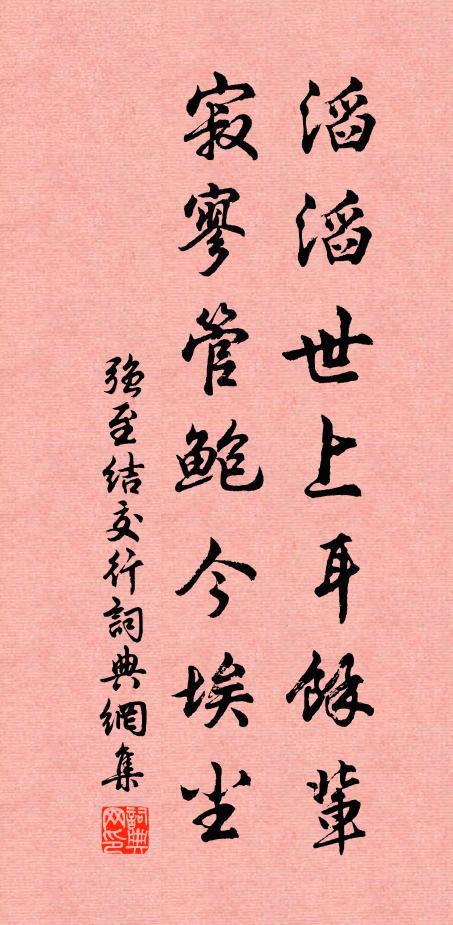 滔滔世上耳餘輩
寂寥管鮑今埃尘
強至结交行詞典網集
詞典网印